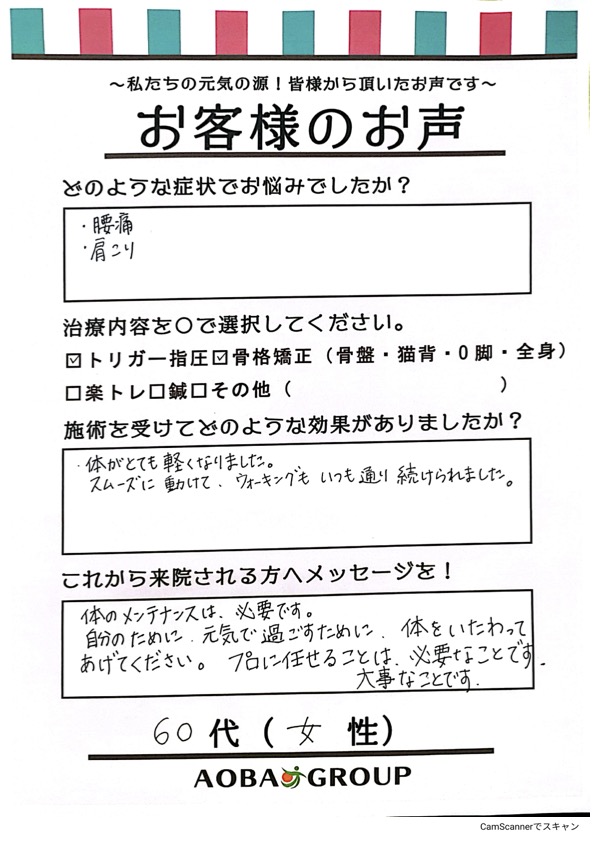 ～私たちの元気の源！皆様から頂いたお声です～
お客様のお声
どのような症状でお悩みでしたか？
・腰痛
・肩こり
治療内容を○で選択してください。
☑トリガー指圧☑骨格矯正（骨盤・猫背・O脚・全身）
□楽トレ□鍼□その他（　　　　　　　　　　）
施術を受けてどのような効果がありましたか？
・体がとても軽くなりました。
スムーズに動けて、ウォーキングもいつも通り続けられました。
これから来院される方へメッセージを！
体のメンテナンスは、必要です。
自分のために、元気で過ごすために、体をいたわって
あげてください。プロに任せることは、必要なことです。
大事なことです。
60代（女性）
AOBA GROUP
CamScannerでスキャン